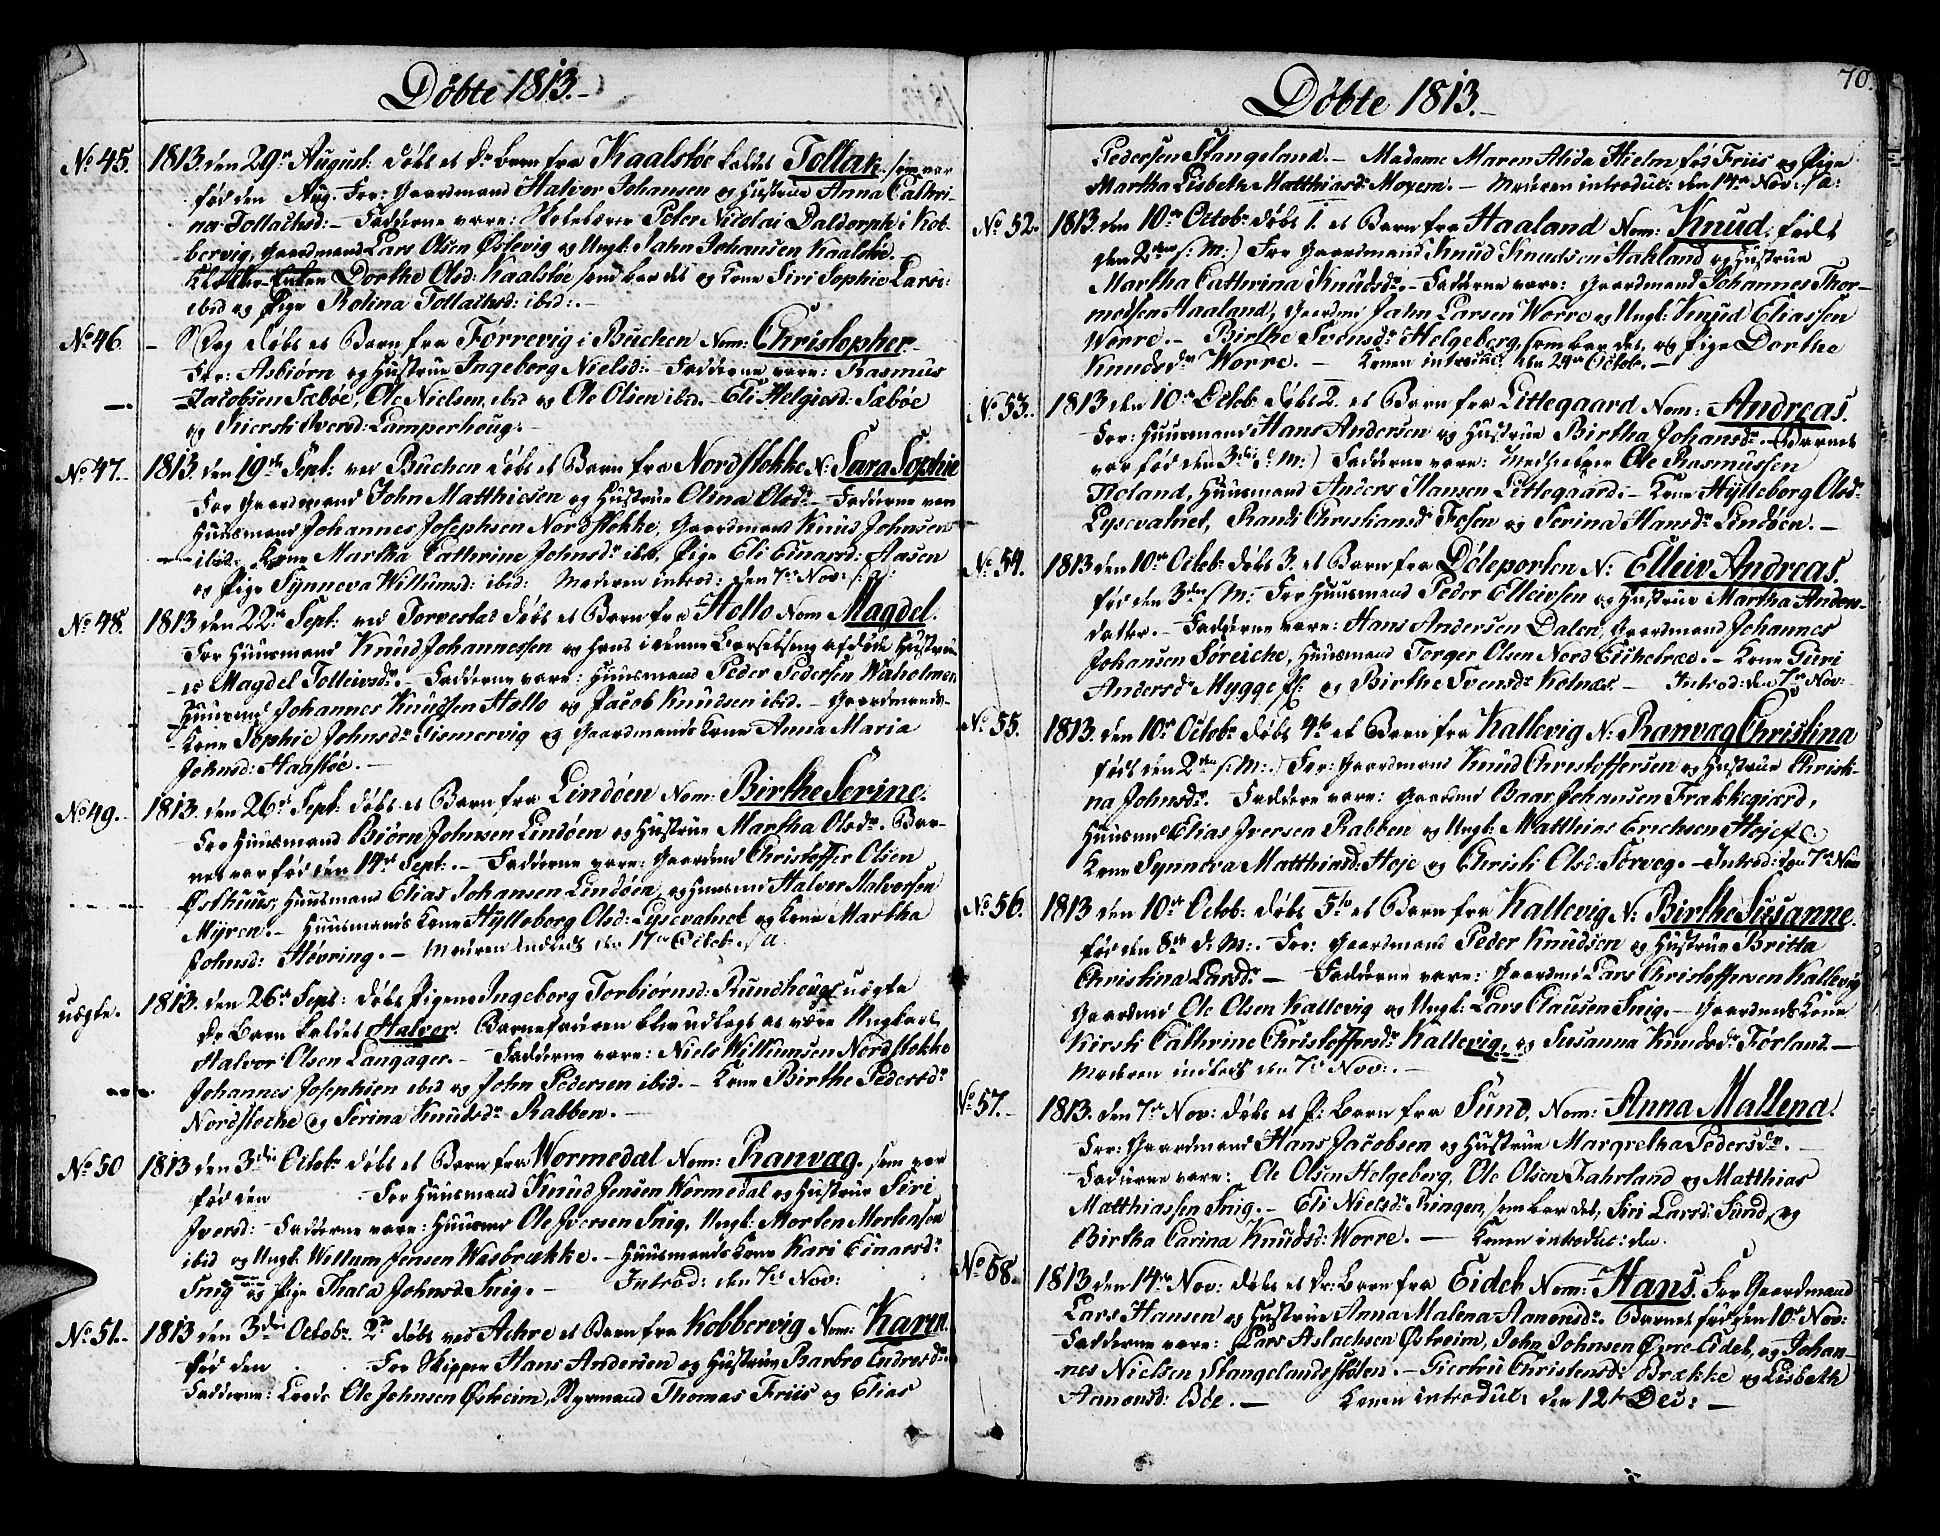 Døbte 1813.-
No 45. 1813. den 29de August: døbt et Dr. Barn fra Kaalstøe kaldet Tollak. som var
fød den Aug. For: Gaardmand Halvor Johansen og Hustrue Anna Cathri-
na Tollachsd: - Fadderne vare: Skolelærer Peter Nicolai Daldorph i Kob-
bervig, Gaardmand Lars Olsen Østevig og Ungk: Jahn Johansen Kaalstøe.
Dorthe Olsd: Kaalstøe som bar det og Kone Siri Sophie Larsd:
ibid og Pige Rolina Tollachsd: ibid:.-
No 46. - Dag døbt et Barn fra Førrevig i Buchen Nom: Christopher.
For: Asbiørn og Hustrue Ingeborg Nielsd: - Fadderne vare: Rasmus
Jacobsen Sæbøe, Ole Nielsen, ibid og Ole Olsen ibid. - Eli Helgiesd: Sæbøe
og Kiersti Iversd: Lamperhoug.-
No 47. - 1813. den 19de Sept: ved Buchen døbt et Barn fra Nordstokke N: Sara Sophie
For Gaardmand John Matthiesen og Hustrue Olina Olsdr. - Fadderne vare
Huusmand Johannes Josephsen Nordstokke, Gaardmand Knud Johnsen
ibid. Kone Martha Cathrine Johnsdr. ibid, Pige Eli Einarsd: Aasen
og Pige Synneva Willumsd: ibid: Moderen introd: den 7de Nov:
No 48. 1813 den 22de Sept: ved Torvestad døbt et Barn fra Hollo Nom Magdel.
For Huusmand Knud Johannessen og hans i denne Barselseng afdøde Hustrue
Magdel Tolleivsdr. - Fadderne vare: Huusmand Peder Pedersen Waholmen
Huusmd Johannes Knudsen Hollo og Jacob Knudsen ibid. - Gaardmands-
Kone Sophie Johnsdr Tiemervig og Gaardmands Kone Anna Maria
Johnsd: Haastøe. -
No 49. - 1813. den 26de Sept: døbt et Barn fra Lindøen Nom: Birthe Serine.
For Huusmand Biørn Johnsen Lindøen og Hustrue Martha Olsdr. Bar-
net var fød den 14de Sept:. - Fadderne vare: Gaardmd Christoffer Olsen
Østhuus, Huusmand Elias Johansen Lindøen, og Huusmd Halver Halversen
Myren. - Huusmands Kone Hylleborg Olsd: Lysevatnet og Kone Martha
Johnsd: Høvring. - Moderen indledt den 17de Octob:
uægte. 1813. den 26de Sept: døbt Pigene Ingeborg Torbiørnsd: Rundhougs uægte
Dr. Barn kaldet Halver. Barnefaderen blev udlagt at være Ungkarl
Halvor Olsen Langager. - Fadderne vare: Niels Willumsen Nordstokke
Johannes Josephsen ibid og John Pedersen ibid. - Kone Birthe Pedersdr
Nordstoche og Serina Knudsdr Rabben. -
No 50 1813 den 3die Octobr døbt et Barn fra Wormedal Nom: Ranvæg. som var
fød den - For Huusmand Knud Jensen Wormedal og Hustrue Siri
Iversd: - Fadderne vare: Huusmd Ole Iversen Snig, Ungk: Morten Mortensen
ibid og Ungk: Willum Jensen Wasbrække. - Huusmands Kone Kari Einarsdr
Snig og Pige Thala Johnsd Snig. - Introd: den 7de Nov:
No 51. - 1813 den 3die Octobr 2do døbt ved Achre et Barn fra Kobbervig Nom: Karen.
fød den . . For Skipper Hans Andersen og Hustrue Barbro Endresdr
Fadderne: Lods Ole Johnsen Østreim, Styrmand Thomas Friis og Elias
Døbte 1813.-
70.
Pedersen Stangeland. - Madame Maren Alida Hielm fød Friis og Pige
Martha Lisbeth Matthiasdr Moxem. - Moderen introdut: den 14de Nov:
No 52. - 1813. den 10de Octobr døbt 1. et Barn fra Haaland Nom: Knud. født
den 2den (d: M:) For Gaardmand Knud Knudsen Haaland og Hustrue
Martha Cathrina Knudsdr. - Fadderne vare: Gaardmand Johannes Thor-
modsen Haaland, Gaardmd Jahn Larsen Worre og Ungk: Knud Eliassen
Worre. - Birthe Svensdr. Helgeberg, som bar det, og Pige Dorthe
Knudsdr Worre. - Konen introdut den 24de Octob. -
No 53. - 1813 den 10de Octobr døbt 2. et Barn fra Littegaard Nom: Andreas.
For: Huusmand Hans Andersen og Hustrue Birtha Johansdr. - Barnet
var fød den 3die (d: M:) Fadderne vare: Medhielper Ole Rasmussen
Roland, Huusmand Anders Hansen Littegaard. - Kone Hylleborg Olsdr
Lysevatnet, Randi Christiansd: Fosen og Serina Hansdr Lindøen. -
No 54. 1813 den 10de Octobr døbt 3. et Barn fra Døleporten N: Elleiv Andreas.
fød den 3die (d: M: For Huusmand Peder Elleivsen og Hustrue Martha Anders-
datter. - Fadderne vare: Hans Andersen Dalen, Gaardmand Johannes
Johansen Søreiche, Huusmand Torger Olsen Nord Eichetræd. - Kone Guri
Andersdr Mygge og Birthe Svensdr Kolnæs. - Introd: den 7de Nov:-
No 55. 1813. den 10de Octobr døbt 4de et Barn fra Kallevig N: Ranvæg Christina
født den 2den (d: M:.) For: Gaardmand Knud Christoffersen og Hustrue Christi-
na Johnsdr. Faddere vare: Gaardmd Baar Johansen Frakkegiærd,
Huusmd Elias Iversen Rabben og Ungk: Matthias Erichsen Høje
Kone Synneva Matthiasd: Høje og Christi Olsd: Torvæg. - Introd: den 7de Nov
No 56. 1813 den 10de Octobr. døbt 5te et Barn fra Kallevig N: Birthe Susanne.
fød den 8de d: M:. - For: Gaardmand Peder Knudsen og Hustrue Britta
Christina Larsdr. - Fadderne vare: Gaardmd Lars Christoffersen Kallevig
Gaardmd Ole Olsen Kallevig og Ungk: Lars Clausen Snig. - Gaardmds Kone
Kirsti Cathrine Christoffersdr Kallevig, og Susanna Knudsdr Førland. -
Moderen indledt den 7de Nov:. -
No 57. - 1813. den 7de Nov: døbt et P: Barn fra Sund, Nom: Anna Mallena.
For: Gaardmand Hans Jacobsen og Hustrue Margretha Pedersdr. -
Fadderne vare: Ole Olsen Helgeberg, Ole Olsen Fahrland og Matthias
Matthiassen Snig. - Eli Nielsdr Ringen, som bar det, Siri Larsd: Sund, og
Birtha Carina Knudsd: Worre. - Konen introdut: den
No 58. 1813 den 14de Nov: døbt et Dr: Barn fra Eideb Nom: Hans. For Gaardmand
Lars Hansen og Hustrue Anna Malena Aamondsdr. Barnet fød den 10de Nov:
Fadderne vare: Lars Aslachsen Østreim, John Johnsen Øvre-Eideb, og Johan-
nes Nielsen Stangelandsstolen. - Giertru Christensd: Brække og Lisbeth
Aamonsd: Bøe. - Konen introdut: den 12te Dec: -